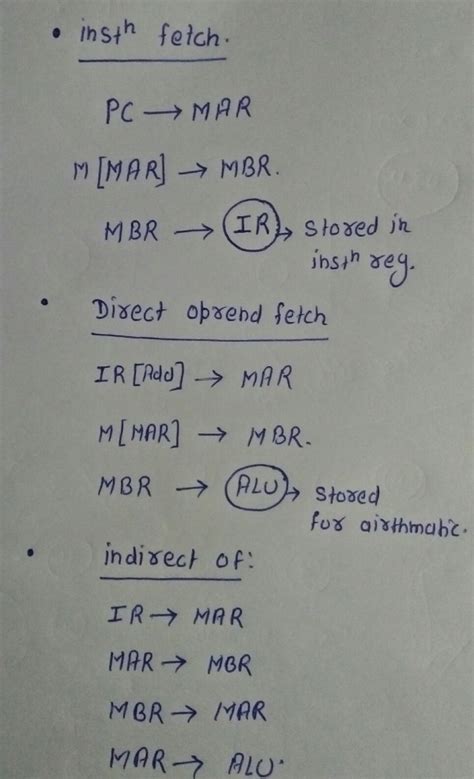 • instⁿ fetch.
PC → MAR
M[MAR] → MBR.
MBR → IR → Stored in
instⁿ reg.
• Direct oprend fetch
IR[Add] → MAR
M[MAR] → MBR.
MBR → ALU → Stored
for airthmatic.
• indirect of:
IR → MAR
MAR → MBR
MBR → MAR
MAR → ALU.